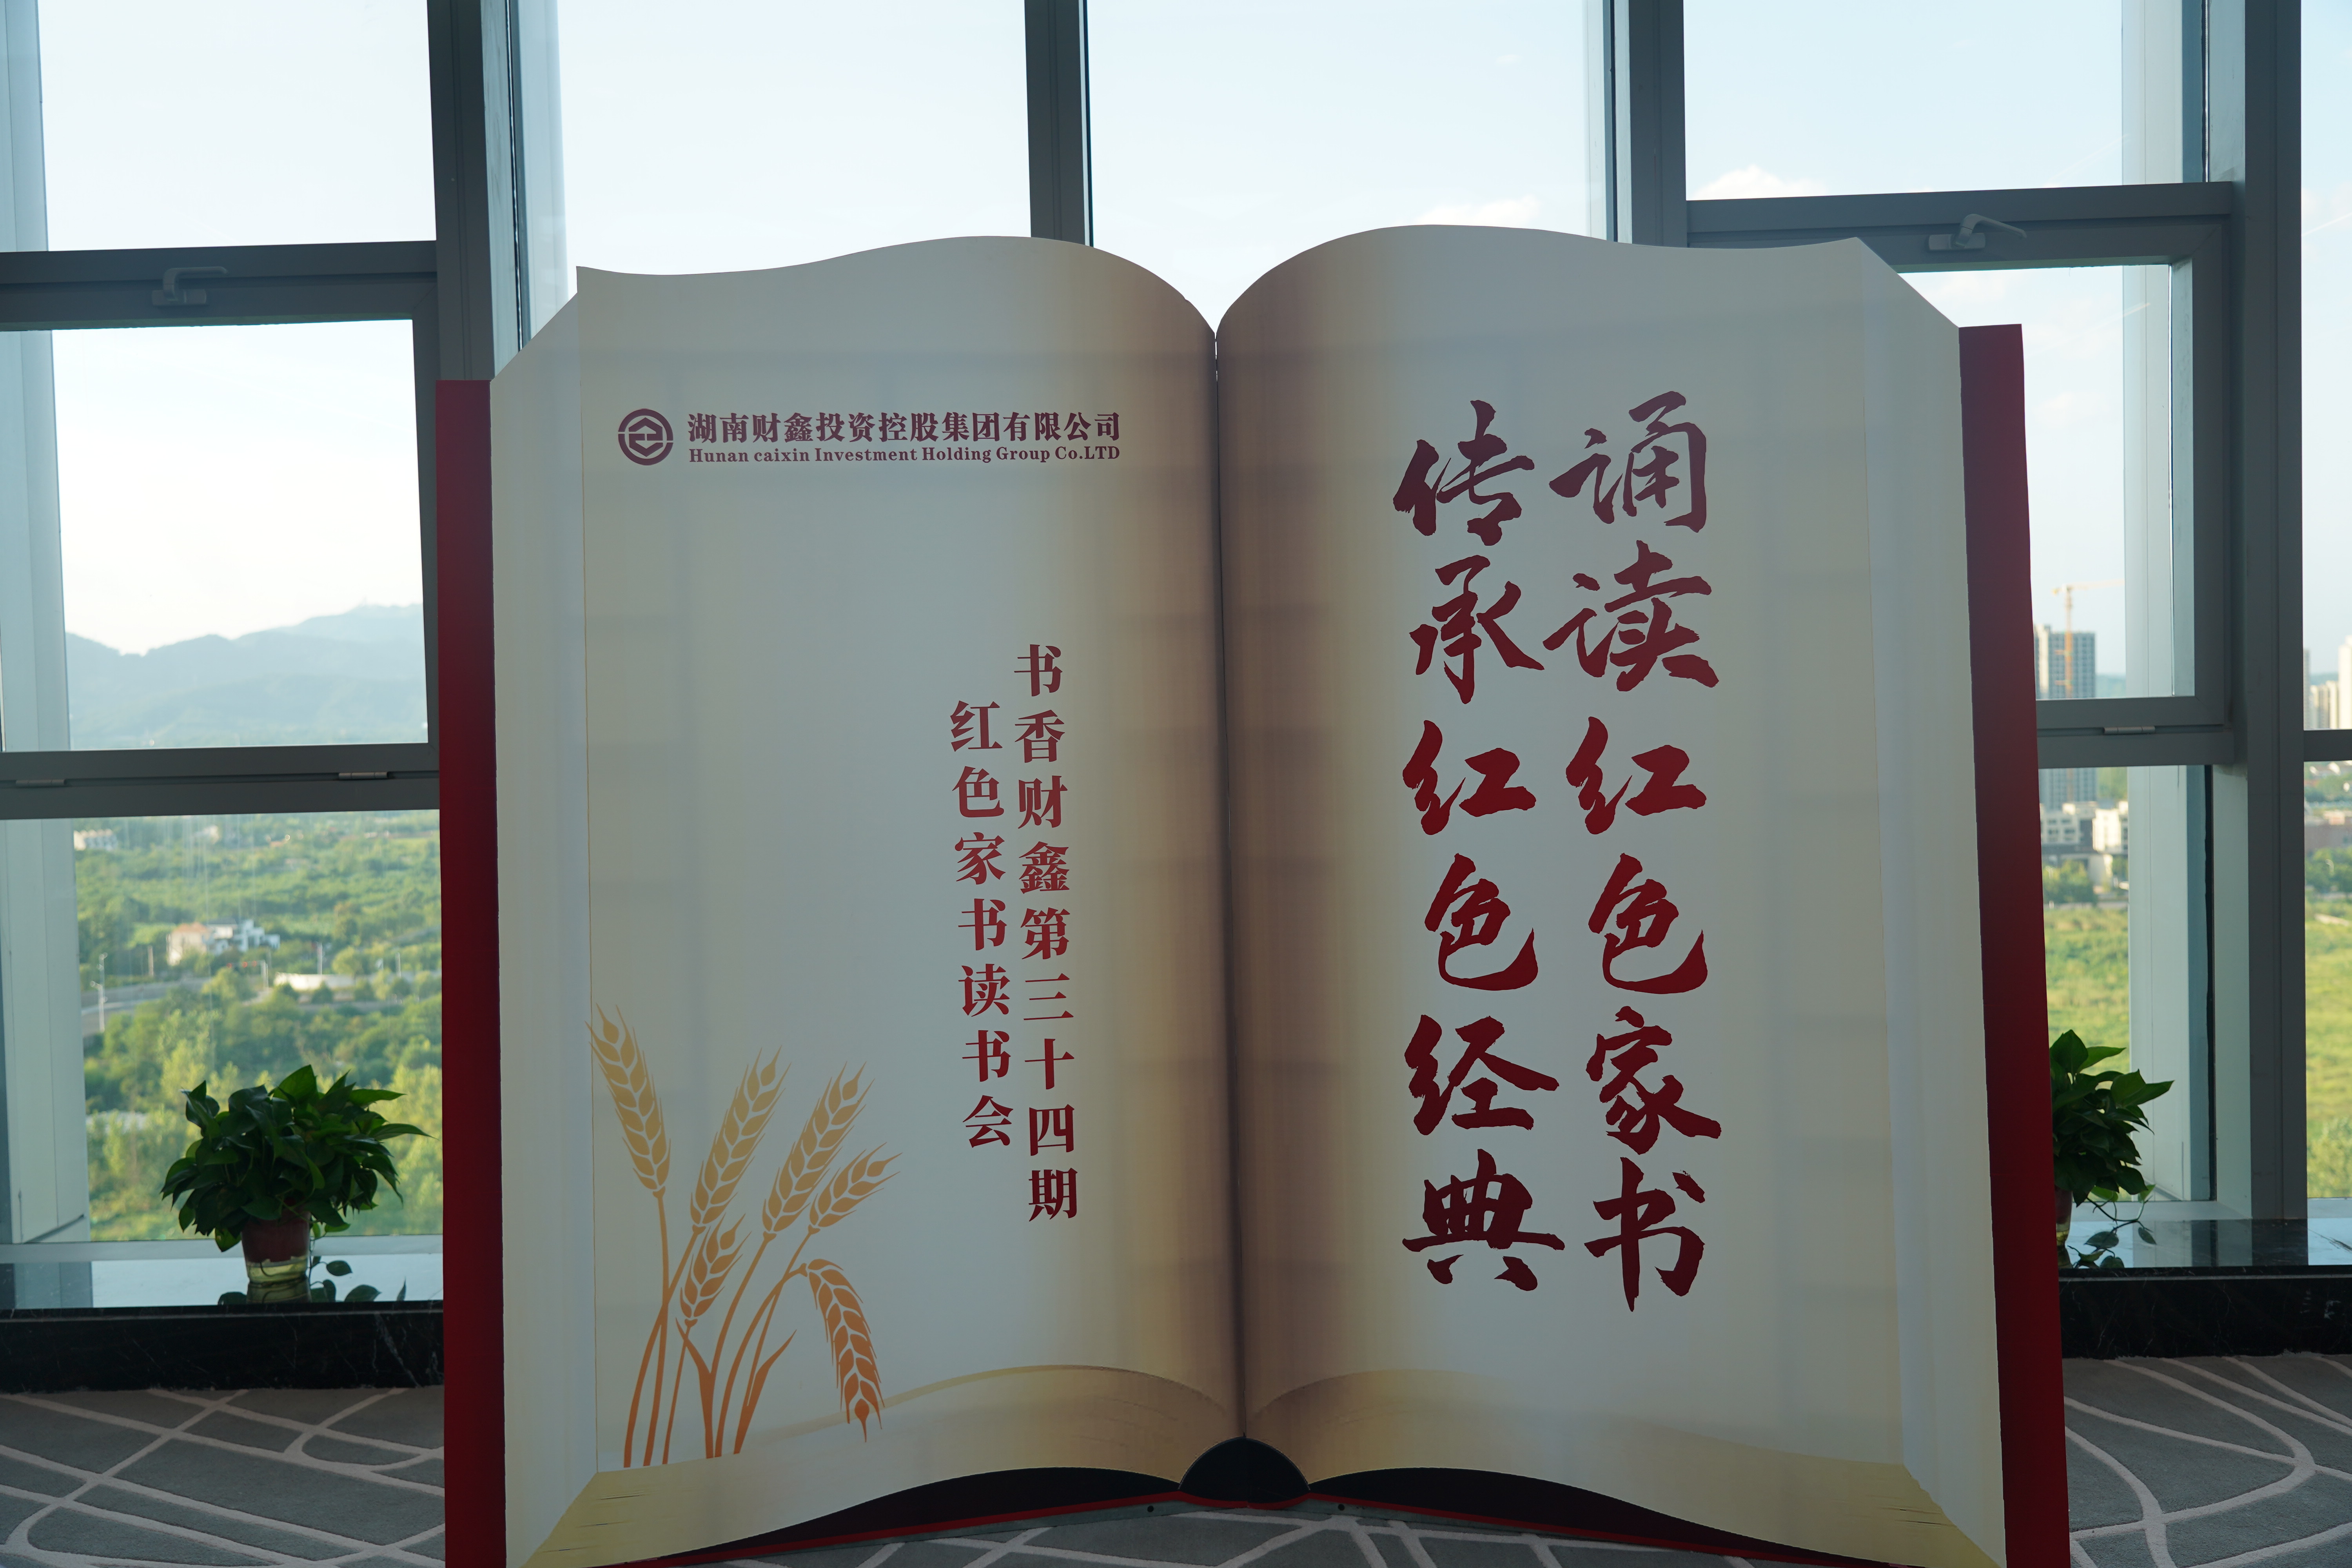 湖南财鑫投资控股集团有限公司
Hunan caixin Investment Holding Group Co.LTD
书香财鑫第三十四期
红色家书读书会
诵读红色家书
传承红色经典